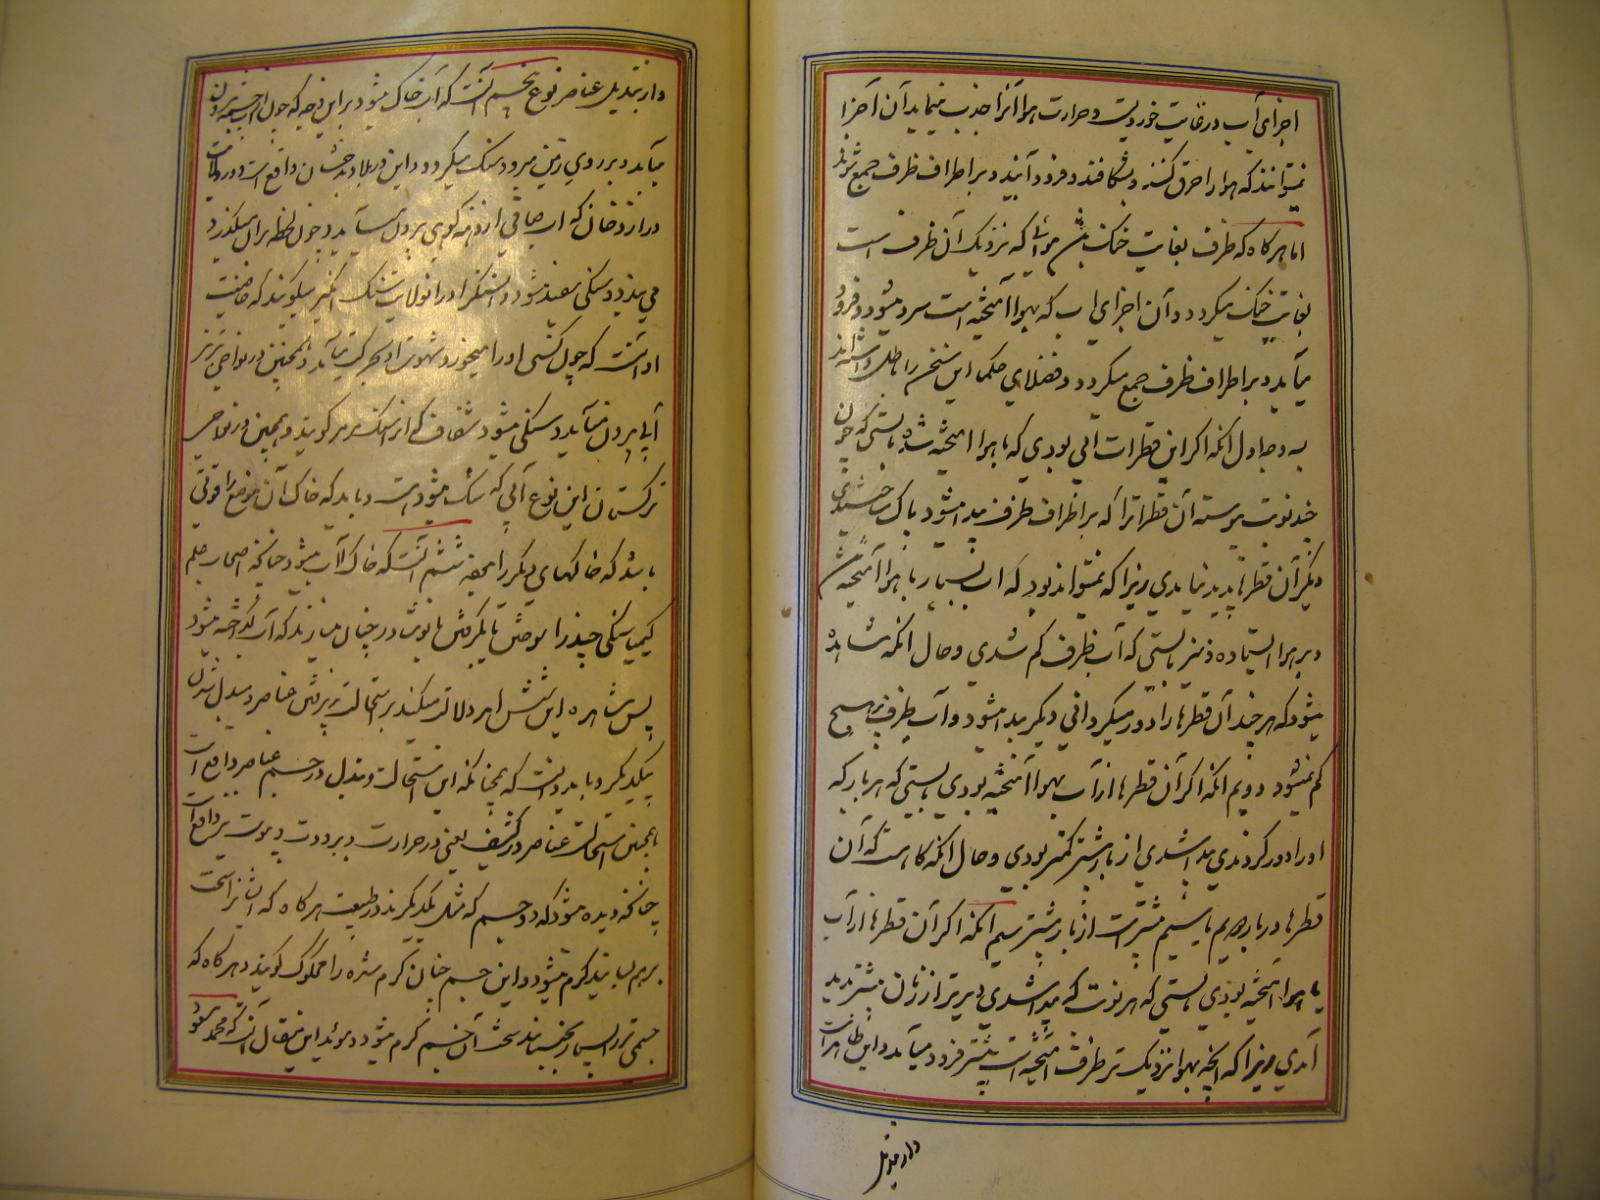 اجزای آب در غایت خوردیست و حرارت هوا آنرا جذب مینماید آن اجزا
نمیتوانند که هوا را خرق کنند و بشکافند و فرود آیند و بر اطراف ظرف جمع شوند
اما هرگاه که ظرف بغایت خنک باشد هوائی که نزدیک آن ظرف است
بغایت خنک میگردد و آن اجزای آب که بهوا آمیخته است سرد میشود و فرود
میآید و بر اطراف ظرف جمع میگردد و فضلای حکما این سخن را باطل داشته‌اند
به وجه اول انکه اگر این قطرات آبی بودی که با هوا آمیخته شده بایستی که چون
چند نوبت پیوسته آن قطرات را که بر اطراف ظرف پیدا میشود پاک ساختندی
دیگر آن قطرها پدید نیامدی زیرا که نمیتواند بود که آب بسیار با هوا آمیخته
و بر هوا ایستاده و نیز بایستی که آب ظرف کم شدی و حال انکه مشاهده
میشود که هر چند آن قطرها را دور میگردانی دیگر پیدا میشود و آب ظرف نیز هیچ
کم نمیشود دویم انکه اگر آن قطرها از آب بهوا آمیخته بودی بایستی که هر بار که
او را دور کردندی پیدا شدی از بار پیشتر کمتر بودی و حال انکه گاه هست که آن
قطرها در بار دویم یا سیم بیشتر است از بار پیشتر سیم انکه اگر آن قطرها از آب
با هوا آمیخته بودی بایستی که هر نوبت که پیدا شدی دیرتر از زمان پیشتر پدید
آمدی زیرا که آنچه بهوا نزدیک تر ظرف آمیخته است پیشتر فرود میآید و این ظاهر است
وار تبدیل
وار تبدیل عناصر نوع پنجم آنست که آب خاک میشود بر این وجه که چون آب از چشمه بیرون
میآید و بر روی زمین میرود سنگ میگردد و این در بلاد بدخشان واقع است و در ولایت
در از دخان که آب صافی از دامنه کوهی بیرون میآید و چون لحظه بران میگذرد
می بندد و سنگی سفید میشود و آن سنگ را در آن ولایت سنگ انگیز میگویند که خاصیت
او آنست که چون کسی او را میخورد شهوت او بحرکت میآید و همچنین در نواحی تبریز
آبی بیرون میآید و سنگی میشود شفاف که انرا سنگ مرمر گویند و همچنین در نواحی
ترکستان این نوع آبی که سنگ میشود هست و باید که خاک آن موضع را قوتی
باشد که خاکهای دیگر را نباشد ششم آنست که خاک آب میشود چنانچه اصحاب علم
کیمیا سنگی چند را بسوختن یا بگرفتن با نوشادر چنان میسازند که آب گداخته میشود
پس مشاهده این شش امر دلالت میکند بر استحالت پذیرفتن عناصر و مبدل شدن
بیکدیگر و باید دانست که همچنانکه این استحالت و تبدل در جسم عناصر واقع است
همچنین استحالت عناصر در کیفیت یعنی در حرارت و برودت و یبوست نیز واقع است
چنانکه دیده میشود که دو جسم که مثل یکدیگرند در طبیعت هرگاه که ایشانرا سخت
برهم بسایند گرم میشود و این جسم چنان گرم شده را محکوک گویند و هرگاه که
جسمی تر را بسیار بجنبانند سخت آن جسم گرم میشود و مؤید این مقال آنست که محمد مسعود